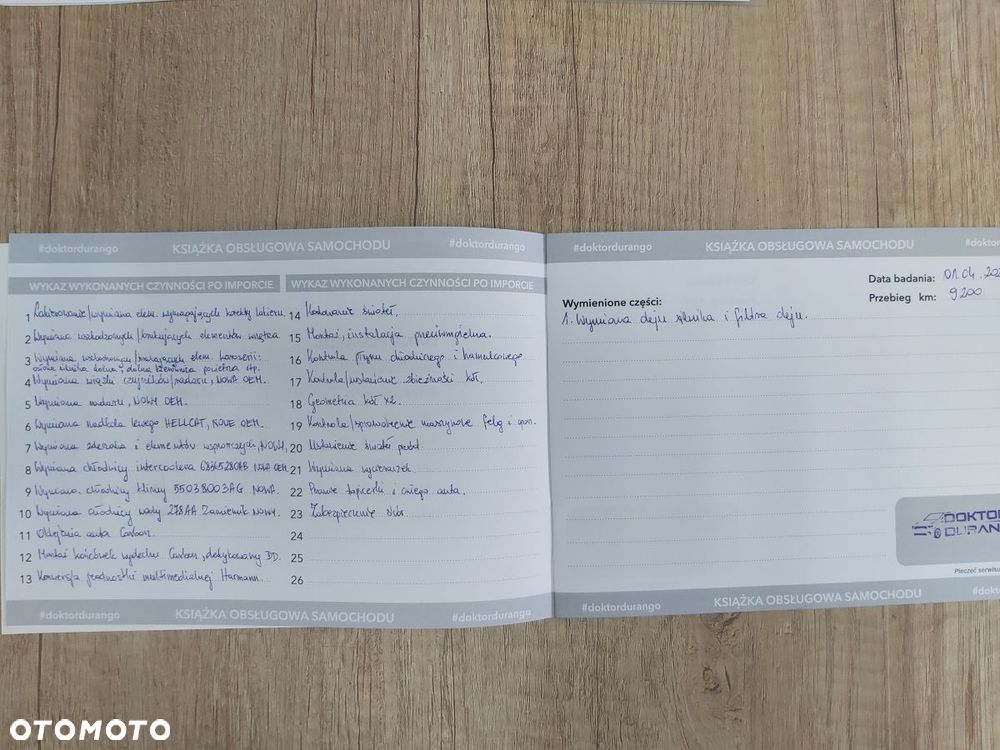 #doktordurango KSIĄŻKA OBSŁUGOWA SAMOCHODU #doktordurango
WYKAZ WYKONANYCH CZYNNOŚCI PO IMPORCIE
1 Lakierowanie/wymiana elem. wymagających korekty lakieru.
2 Wymiana uszkodzonych/brakujących elementów wnętrza
3 Wymiana uszkodzonych/brakujących elem. karoserii:
osłona silnika dolna, dolna kierownica powietrza itp.
4 Wymiana wiązki czujników/radaru, NOWA OEM.
5 Wymiana radaru, NOWY OEM.
6 Wymiana nadkola lewego HELLCAT, NOWE OEM.
7 Wymiana zderzaka i elementów wsporczych, NOWY.
8 Wymiana chłodnicy intercoolera 68365280AB NOWA OEM
9 Wymiana chłodnicy klimy 55038003AG NOWA.
10 Wymiana chłodnicy wody 278AA Zamiennik NOWY.
11 Oklejenia auta Carbon.
12 Montaż końcówek wydechu Carbon, dedykowany DD.
13 Konwersja jednostki multimedialnej Harmann.
WYKAZ WYKONANYCH CZYNNOŚCI PO IMPORCIE
14 Kodowanie świateł.
15 Montaż, instalacja pneumatyczna.
16 Kontrola płynu chłodniczego i hamulcowego
17 Kontrola/ustawienie zbieżności kół.
18 Geometria kół x2.
19 Kontrola/sprawdzenie maszynowe felg i opon.
20 Ustawienie świateł przód.
21 Wymiana wycieraczek
22 Pranie tapicerki i całego auta.
23 Zabezpieczenie
24
25
26
#doktordurango KSIĄŻKA OBSŁUGOWA SAMOCHODU #doktordurango
#doktordurango KSIĄŻKA OBSŁUGOWA SAMOCHODU #dokto
Data badania: 01.04.202
Przebieg km: 9200
Wymienione części:
1. Wymiana oleju silnika i filtra oleju.
DOKTOR
DURAN
Pieczęć serwisu
#doktordurango KSIĄŻKA OBSŁUGOWA SAMOCHODU #dokto
OTOMOTO